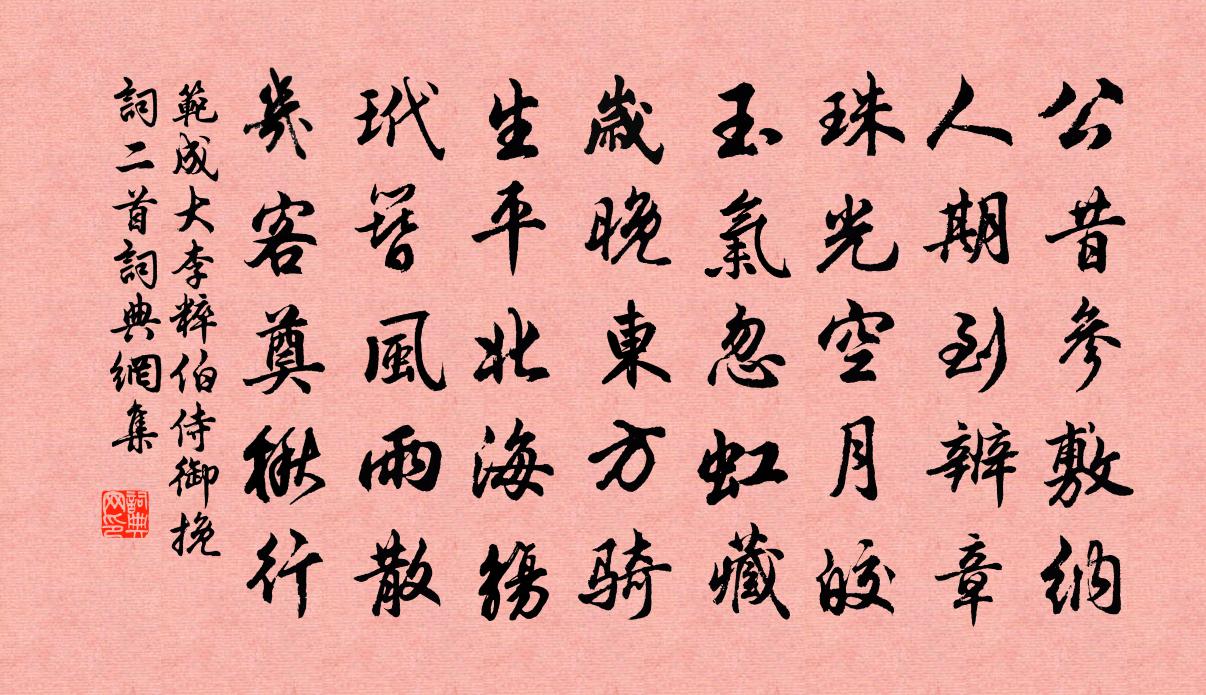 公昔參敷納
人期到辨章
珠光空月皎
玉氣忽虹藏
歲晚東方騎
生平北海觴
玳簪風雨散
幾客奠楸行
範成大李粹伯侍御挽
詞二首詞典網集
詞典网印